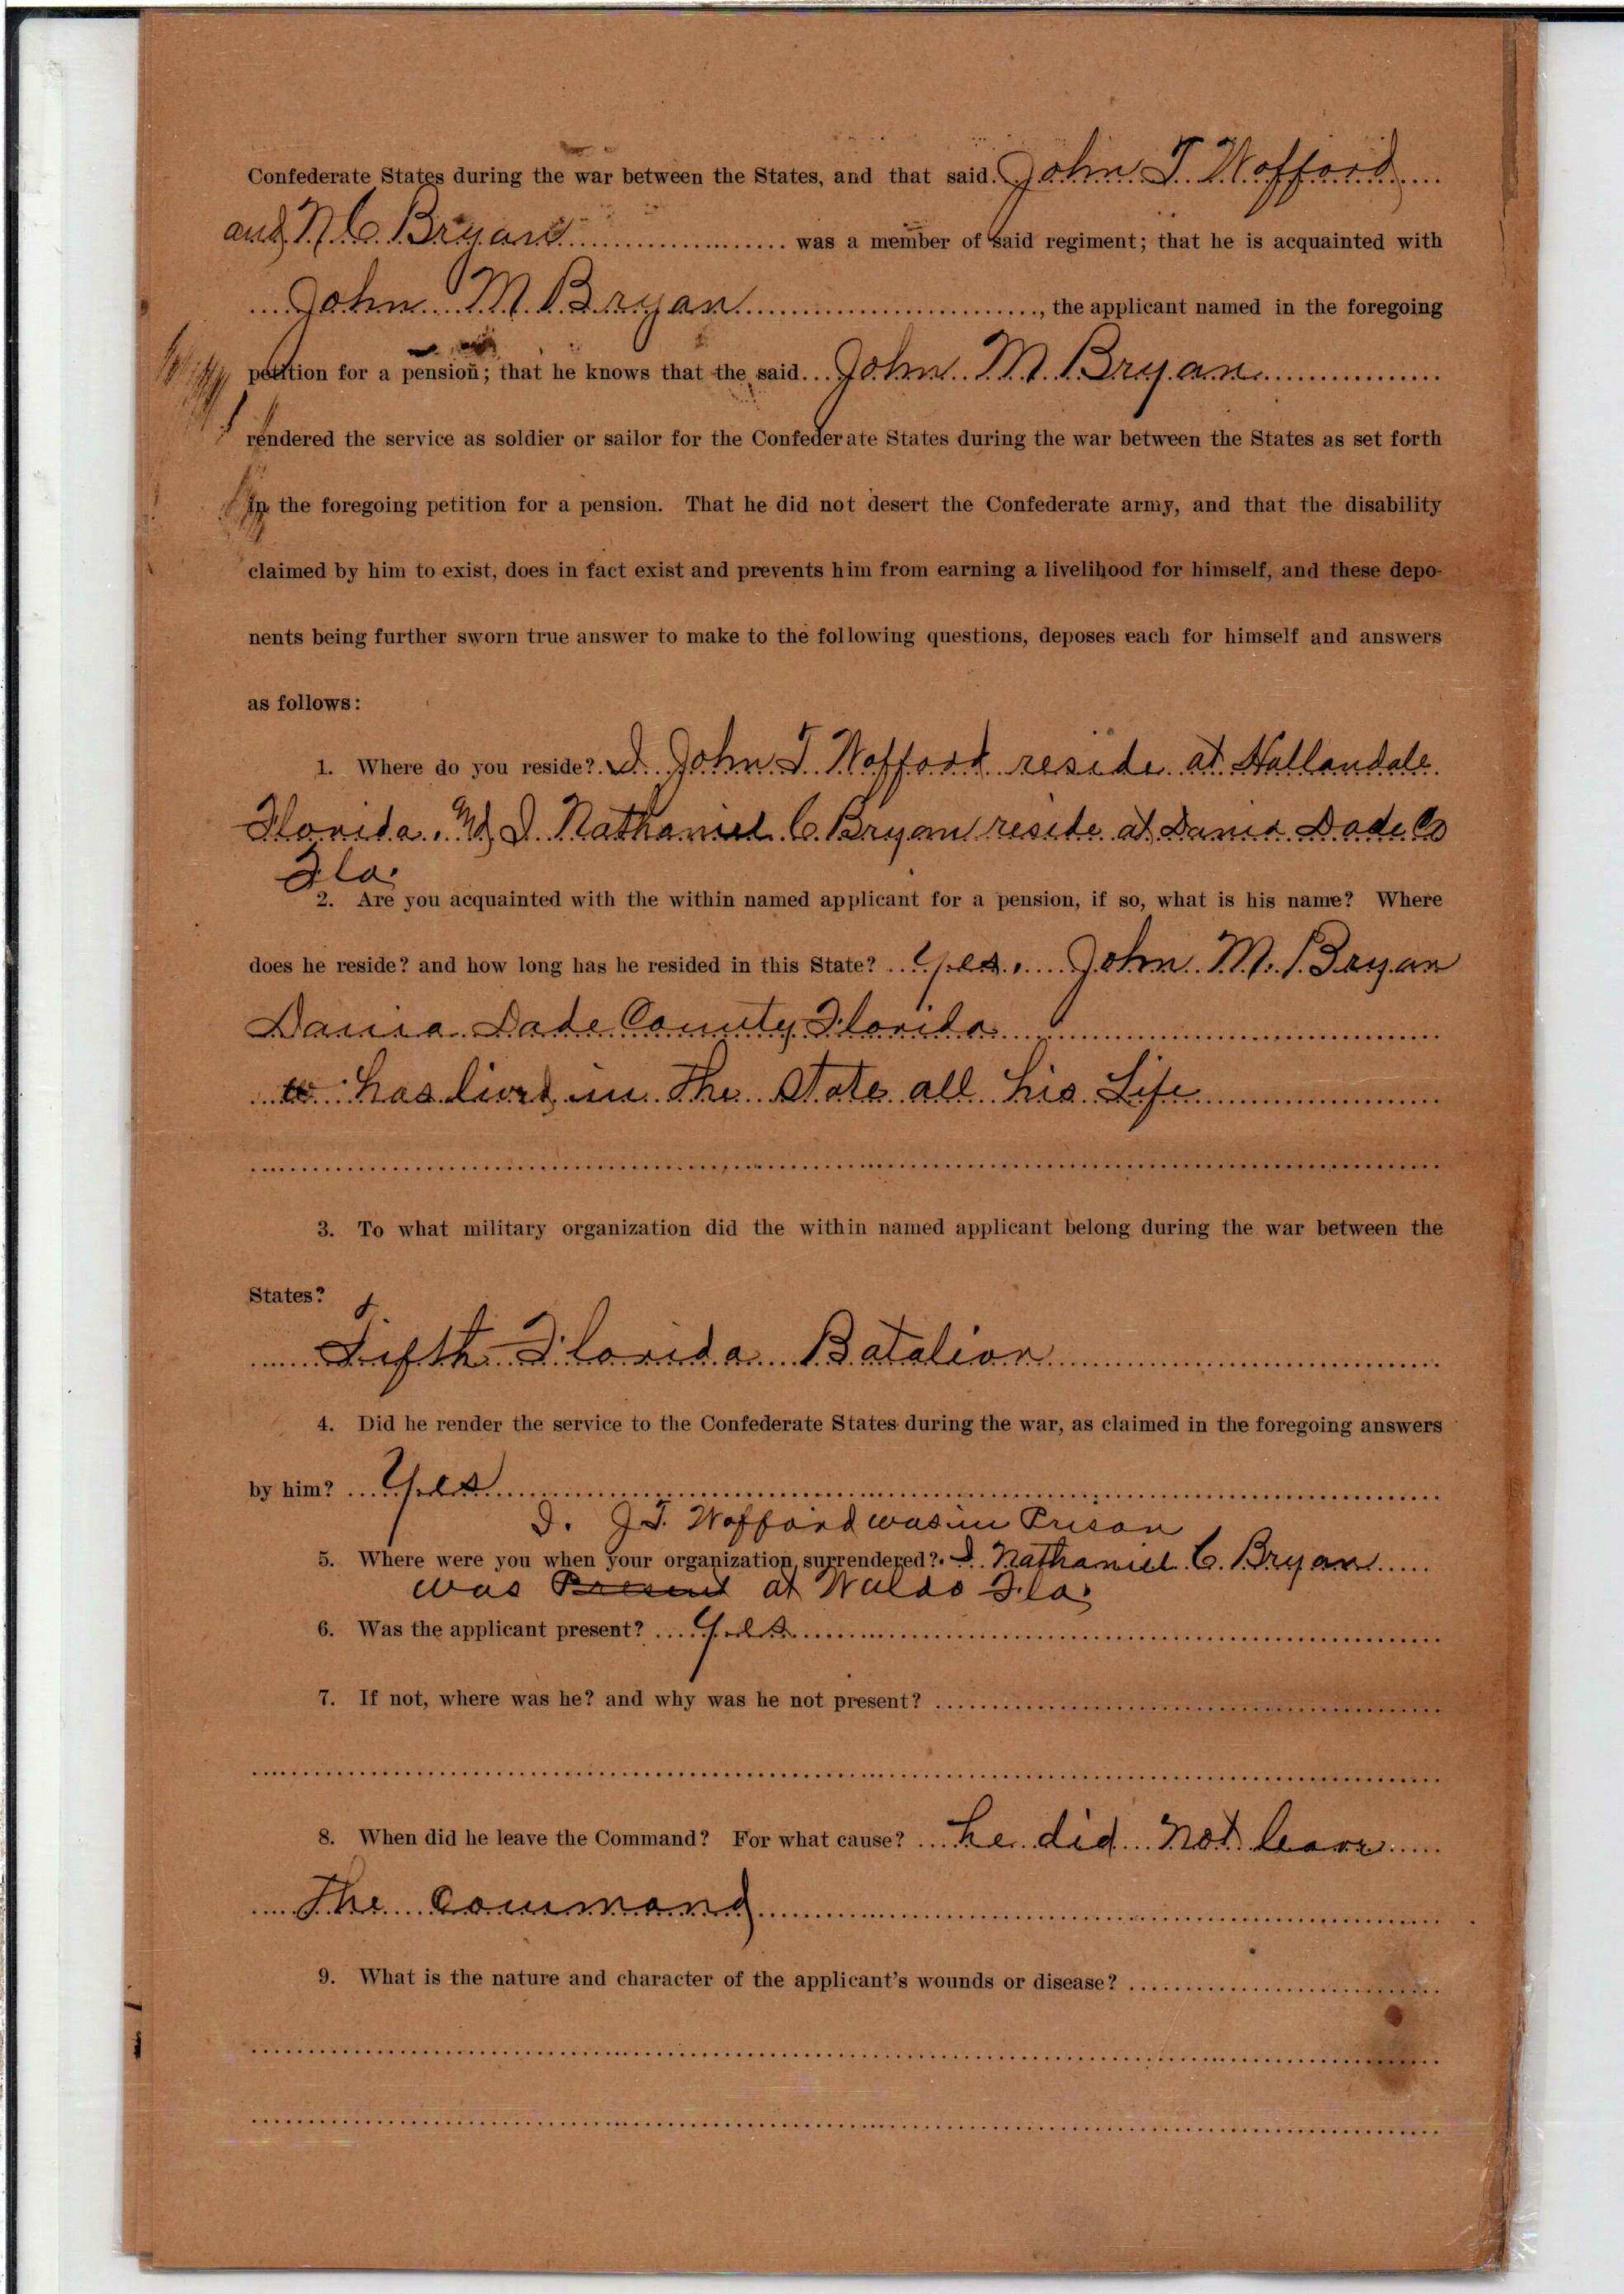 Confederate States during the war between the States, and that said John T. Wofford
and N C Bryan was a member of said regiment; that he is acquainted with
John M Bryan, the applicant named in the foregoing
petition for a pension; that he knows that the said John M. Bryan
rendered the service as soldier or sailor for the Confederate States during the war between the States as set forth
in the foregoing petition for a pension. That he did not desert the Confederate army, and that the disability
claimed by him to exist, does in fact exist and prevents him from earning a livelihood for himself, and these depo-
nents being further sworn true answer to make to the following questions, deposes each for himself and answers
as follows:
1. Where do you reside? I John T. Wofford reside at Hallandale
Florida. And I Nathaniel C. Bryan reside at Dania Dade Co
Fla.
2. Are you acquainted with the within named applicant for a pension, if so, what is his name? Where
does he reside? and how long has he resided in this State? Yes. John M. Bryan
Dania Dade County Florida
has lived in the State all his Life
3. To what military organization did the within named applicant belong during the war between the
States?
Fifth Florida Batalion
4. Did he render the service to the Confederate States during the war, as claimed in the foregoing answers
by him? Yes
I. J T. Wofford was in Prison
5. Where were you when your organization surrendered? I Nathaniel C. Bryan
was Present at Waldo Fla.
6. Was the applicant present? Yes
7. If not, where was he? and why was he not present?
8. When did he leave the Command? For what cause? he did not leave
The Command
9. What is the nature and character of the applicant's wounds or disease?